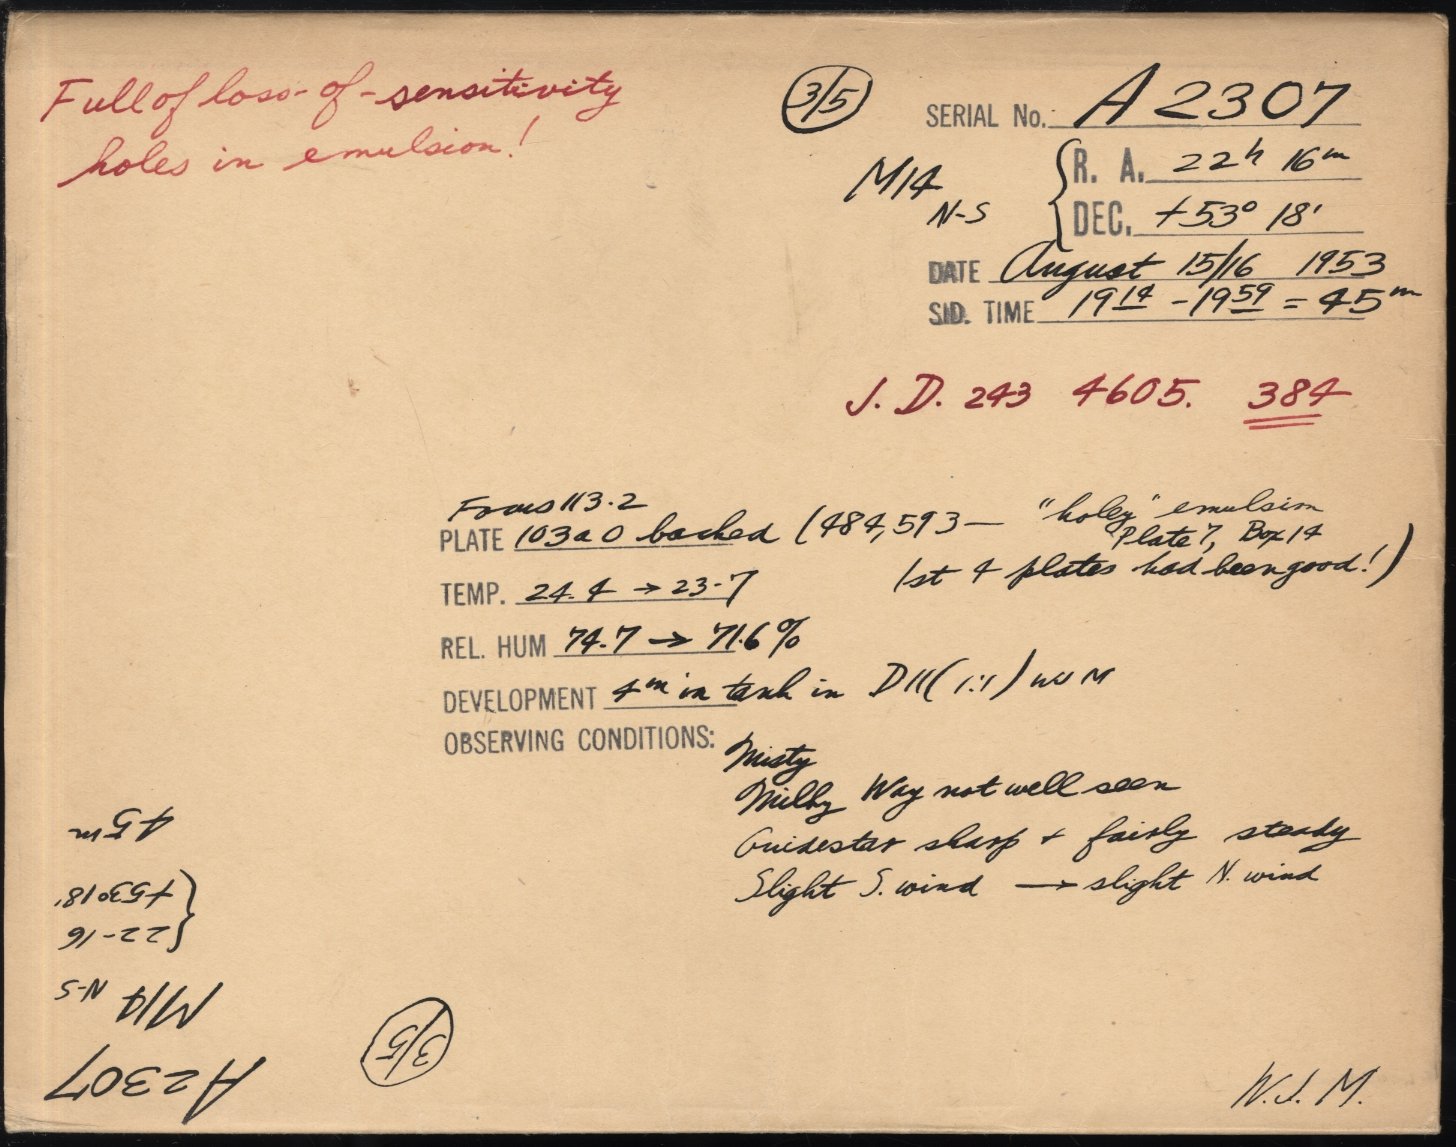 Full of loss-of-sensitivity
holes in emulsion!
3/5
SERIAL No. A 2307
M14
N-S
R. A. 22h 16m
DEC. +53° 18'
DATE August 15/16 1953
SID. TIME 19 14 - 19 59 = 45m
J. D. 243 4605. 384
Focus 113.2
PLATE 103a O backed (484,593 — "holey" emulsion
Plate 7, Box 14
1st 4 plates had been good!)
TEMP. 24.4 → 23.7
REL. HUM 74.7 → 71.6%
DEVELOPMENT 4m in tank in D11 (1:1)
OBSERVING CONDITIONS:
Misty
Milky Way not well seen
Guidestar sharp + fairly steady
Slight S. wind → slight N. wind
A2307
M14 N-S
22-16
+53° 18'
45m
3/5
W.J.M.